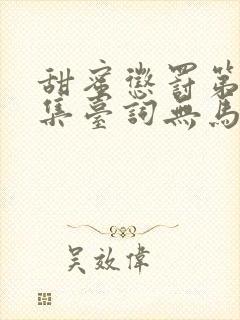 甜蜜懲罰第
集臺詞無馬
吳效偉